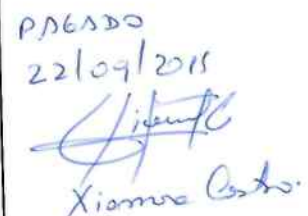 PAGADO
22/09/2015
Xiomara Castro.